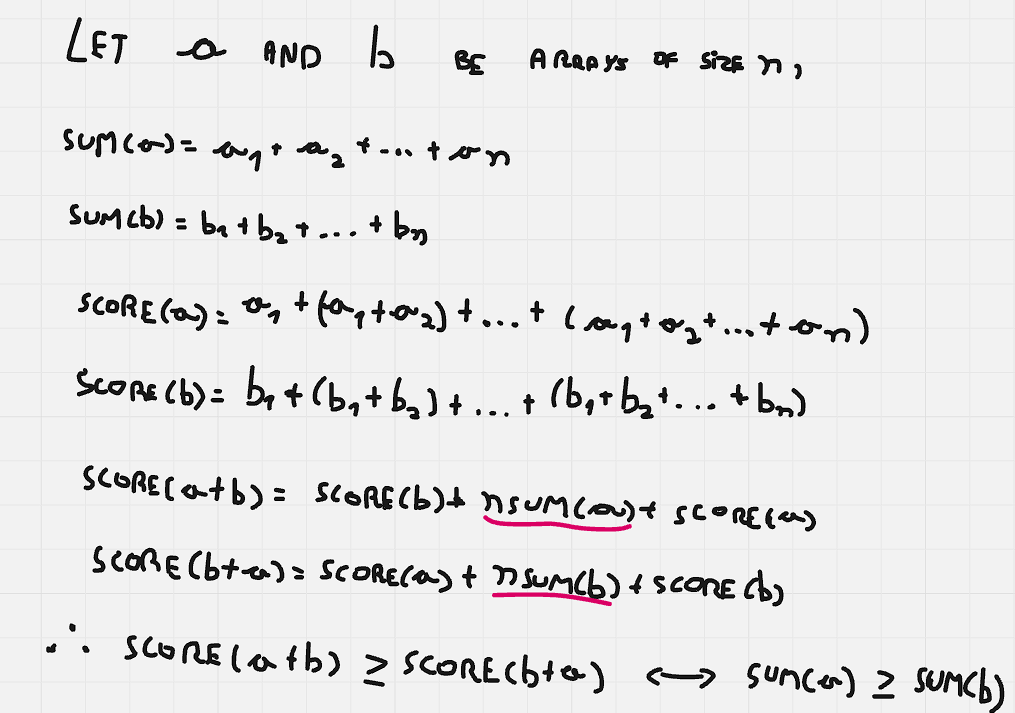 LET a AND b BE ARRAYS OF SIZE n,
SUM(a) = a₁ + a₂ + ... + an
SUM(b) = b₁ + b₂ + ... + bn
SCORE(a) = a₁ + (a₁ + a₂) + ... + (a₁ + a₂ + ... + an)
SCORE(b) = b₁ + (b₁ + b₂) + ... + (b₁ + b₂ + ... + bn)
SCORE(a+b) = SCORE(b) + nSUM(a) + SCORE(a)
SCORE(b+a) = SCORE(a) + nSUM(b) + SCORE(b)
∴ SCORE(a+b) ≥ SCORE(b+a) ↔ SUM(a) ≥ SUM(b)